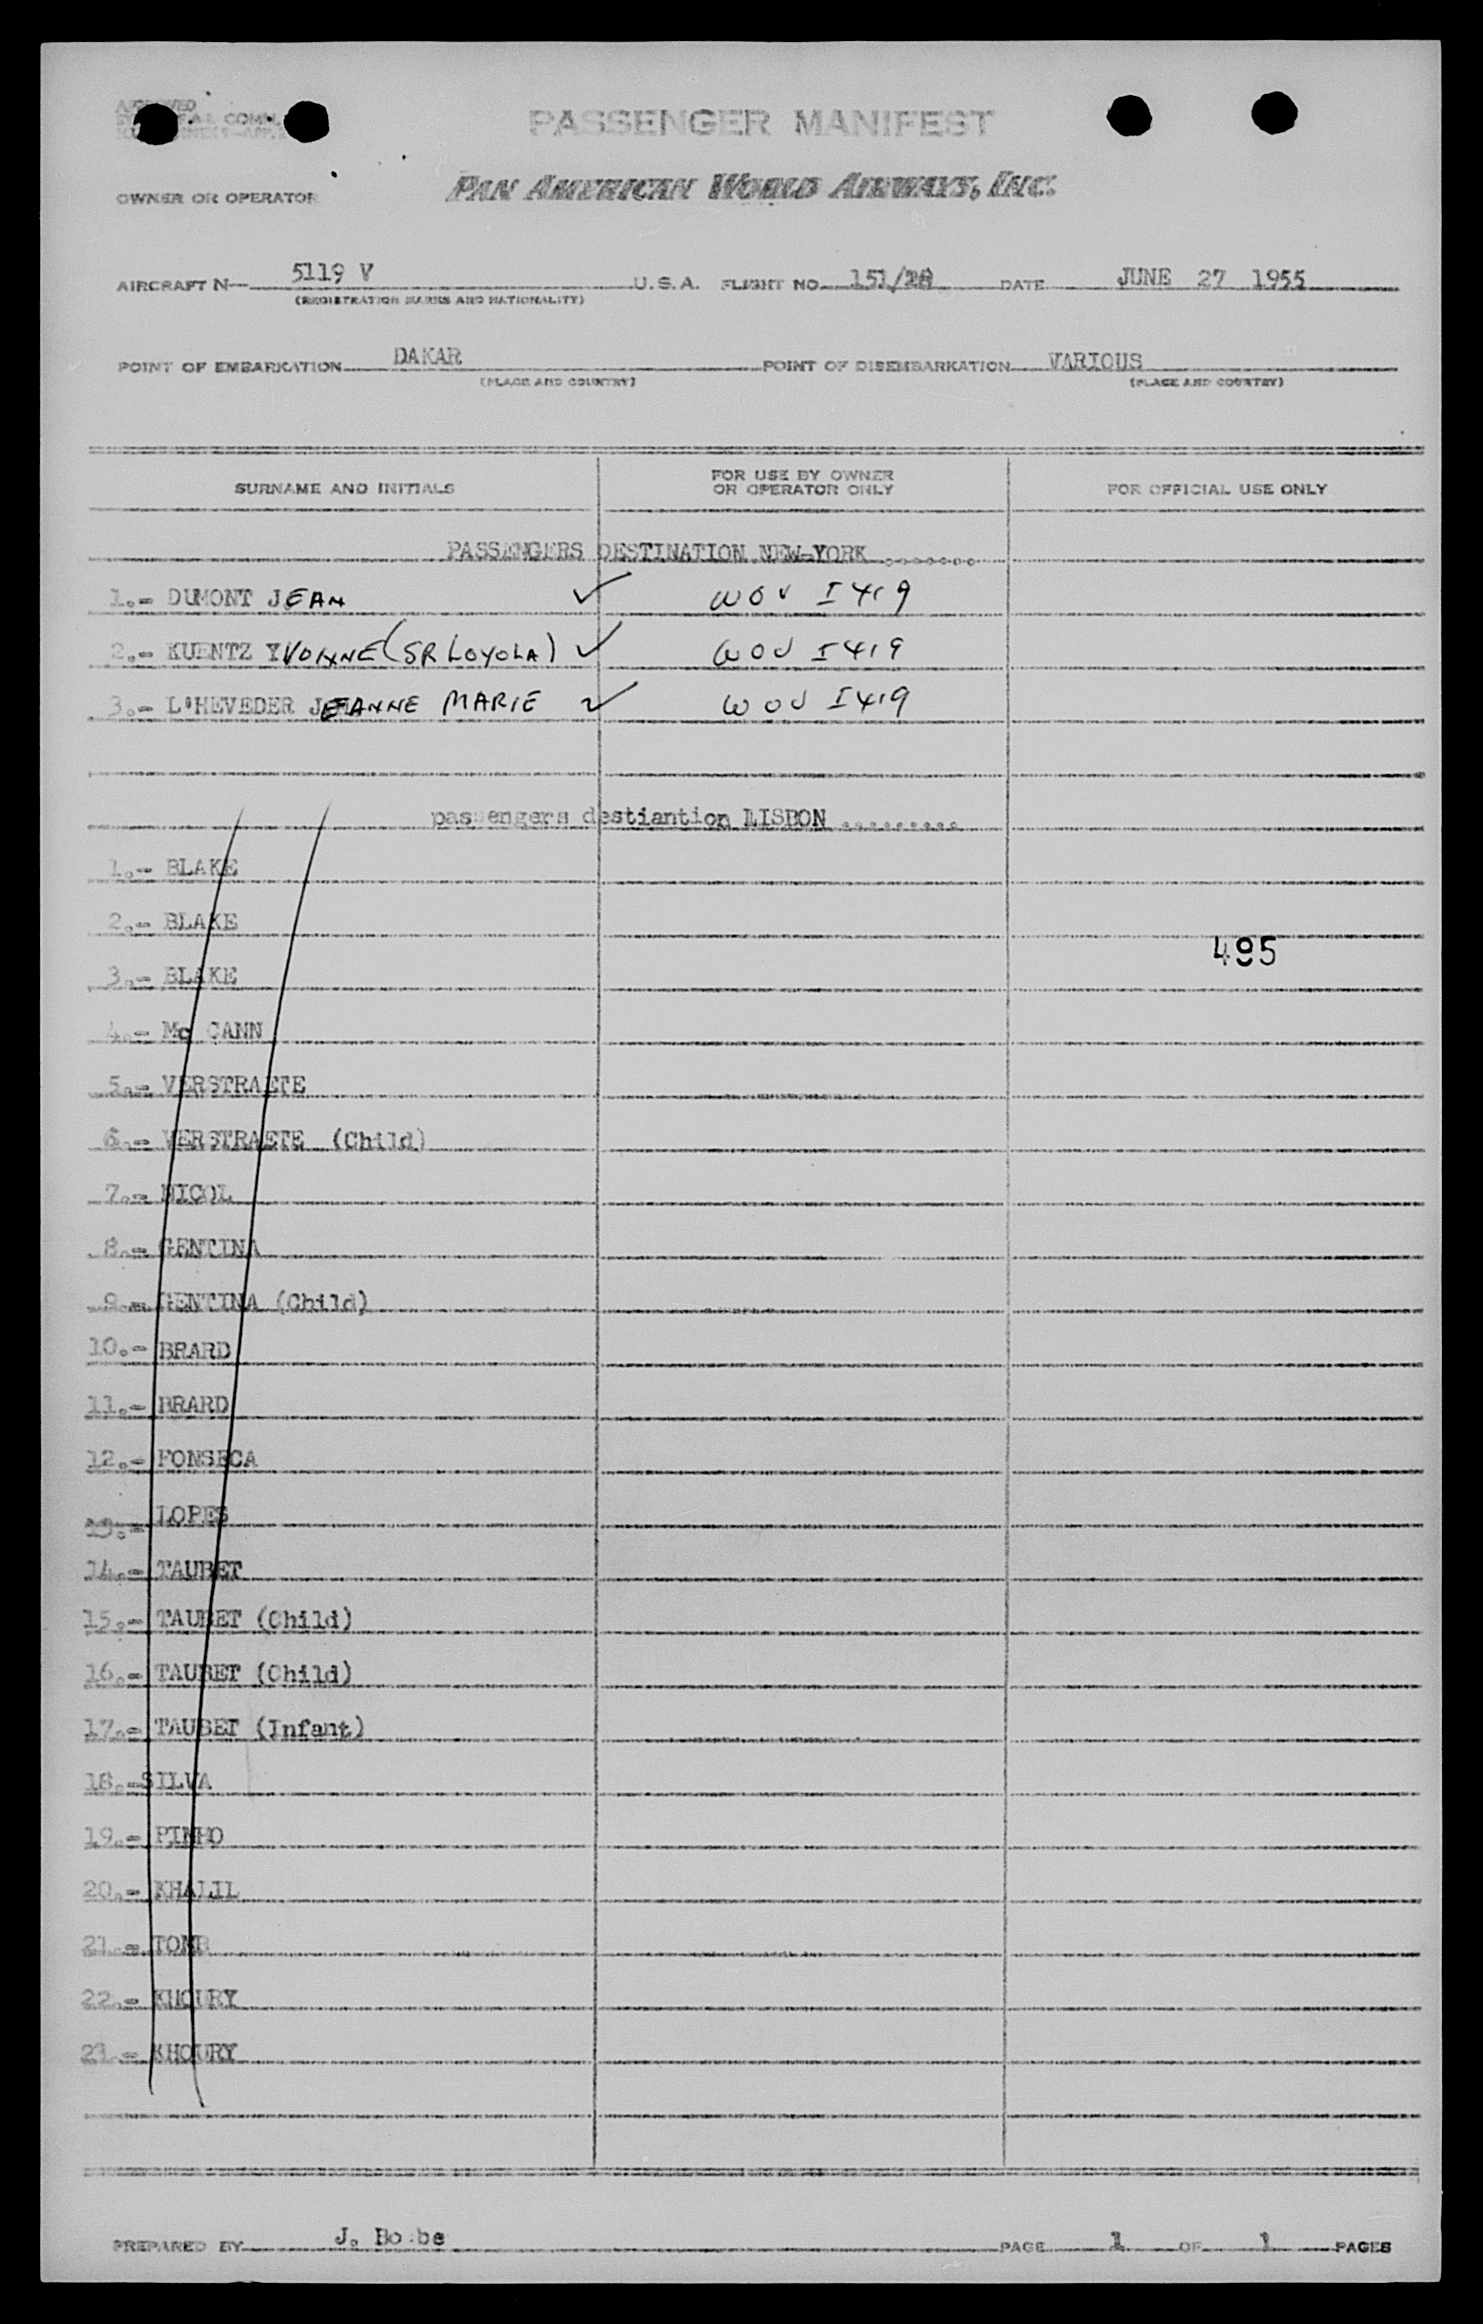 PASSENGER MANIFEST
OWNER OR OPERATOR PAN AMERICAN WORLD AIRWAYS, INC.
AIRCRAFT N— 5119 V U.S.A. FLIGHT NO. 151/28 DATE JUNE 27 1955
(REGISTRATION MARKS AND NATIONALITY)
POINT OF EMBARKATION DAKAR POINT OF DISEMBARKATION VARIOUS
(PLACE AND COUNTRY) (PLACE AND COUNTRY)
SURNAME AND INITIALS FOR USE BY OWNER OR OPERATOR ONLY FOR OFFICIAL USE ONLY
PASSENGERS DESTINATION NEW-YORK .......
1.- DUMONT JEAN ✓ WOV I419
2.- KUENTZ YVONNE (SR LOYOLA) ✓ WOV I419
3.- L'HEVEDER JEANNE MARIE ✓ WOV I419
passengers destiantion LISBON .........
1.- BLAKE
2.- BLAKE
495
3.- BLAKE
4.- Mc CANN
5.- VERSTRAETE
6.- VERSTRAETE (Child)
7.- NICOL
8.- GENTINA
9.- GENTINA (Child)
10.- BRARD
11.- BRARD
12.- FONSECA
13.- LOPES
14.- TAUBET
15.- TAUBET (Child)
16.- TAUBET (Child)
17.- TAUBET (Infant)
18.-SILVA
19.- PINHO
20.- KHALIL
21.-
22.- KHOURY
23.- KHOURY
PREPARED BY J. PAGE 1 OF 1 PAGES